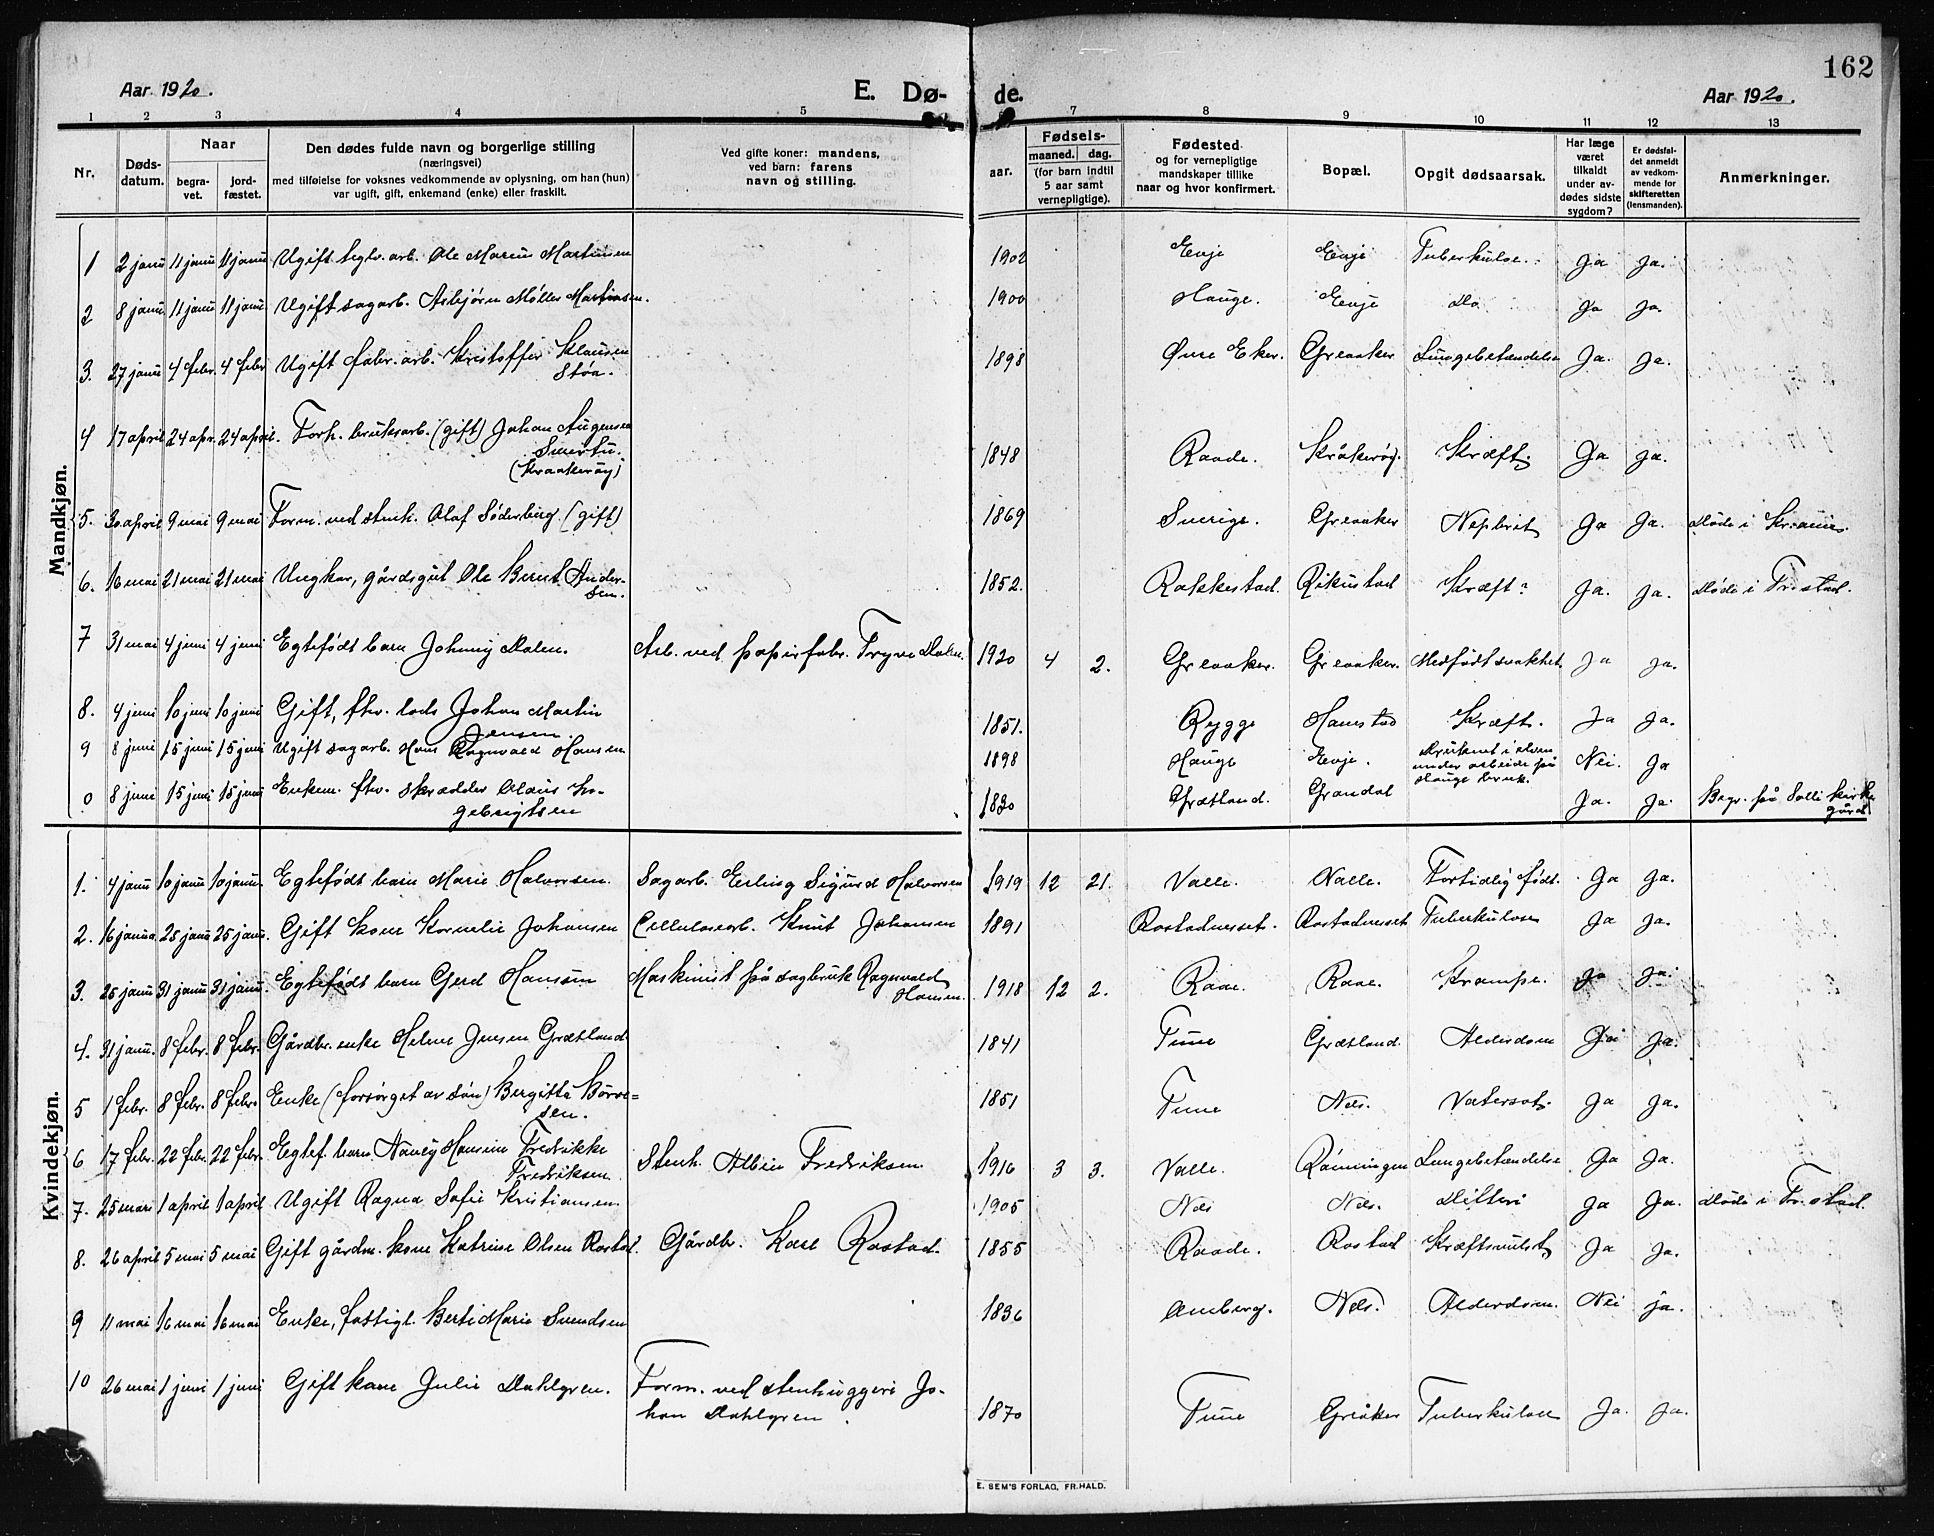 162
Aar 1920. E. Dø- de. Aar 1920.
1 2 3 4 5 7 8 9 10 11 12 13
Nr. Døds-datum. Naar begra-vet. jord-fæstet. Den dødes fulde navn og borgerlige stilling (næringsvei) med tilføielse for voksnes vedkommende av oplysning, om han (hun) var ugift, gift, enkemand (enke) eller fraskilt. Ved gifte koner: mandens, ved barn: farens navn og stilling. aar. Fødsels- maaned. dag. (for barn indtil 5 aar samt vernepligtige). Fødested og for vernepligtige mandskaper tillike naar og hvor konfirmert. Bopæl. Opgit dødsaarsak. Har læge været tilkaldt under av-dødes sidste sygdom? Er dødsfal-det anmeldt av vedkom-mende for skifteretten (lensmanden). Anmerkninger.
Mandkjøn.
1 2 janu 11 janu 11 janu Ugift teglv. arb. Ole Marius Martinsen 1902 Evje Evje Tuberkulose. Ja Ja.
2 8 janu 11 janu 11 janu Ugift sagarb. Asbjørn Møller Martinsen. 1900 Hauge. Evje Do Ja Ja.
3. 27 janu 4 febr. 4 febr Ugift fabr. arb. Kristoffer Klausen Støa. 1898 Øvre Eker. Greaaker Lungebetændelse Ja. Ja.
4 17 april 24 apr. 24 april. Forh. bruksarb. (gift) Johan Augensen (Kraakerøy) 1848 Raade. Kråkerøy. Kræft. Ja Ja.
5. 30 april 9 mai 9 mai Form. ved stenh. Olaf Søderberg (gift) 1869 Sverige. Greaaker Nephrit Ja Ja. Døde i
6. 16 mai 21 mai 21 mai Ungkar, gårdsgut Ole Bernt Ander-sen. 1852. Rakkestad. Rikustad Kræft? Ja. Ja. Døde i Fr.stad.
7 31 mai 4 juni 4 juni Egtefødt barn Johnny Dalen. Arb. ved papirfabr. Trygve Dalen. 1920 4 2. Greaaker. Greaaker. Medfødt svakhet. Ja Ja.
8. 4 juni 10 juni 10 juni Gift, fhv. lods Johan Martin Jensen. 1851. Rygge Hamstad Kræft. Ja Ja.
9 8 juni 15 juni 15 juni Ugift sagarb. Hans Ragnvald Hansen 1898 Hauge Evje. Druknet i elven under arbeide på Hauge bruk. Nei. Ja
0 8 juni 15 juni 15 juni Enkem. fhv. skrædder Olaus In-gebrigtsen 1830 Grætland. Grandal Ja. Ja. Begr. på Solli kirke gård
Kvindekjøn.
1. 4 janu 10 janu 10 janu. Egtefødt barn Marie Halvorsen. Sagarb. Erling Sigurd Halvorsen 1919 12 21. Valle. Valle. Fortidlig født. Ja Ja.
2. 16 janua. 25 janu 25 janu. Gift kone Kornelie Johansen Cellulosearb. Knut Johansen 1891 Rostadnesset. Rostadnesset Tuberkulose Ja Ja.
3. 25 janu 31 janu 31 janu. Egtefødt barn Gerd Hansen Maskinist på sagbruk Ragnvald Hansen. 1918 12 2. Raae. Raae. Krampe. Ja Ja.
4. 31 janu. 8 febr. 8 febr. Gårdbr. enke Helene Jensen Grætland 1841 Tune Grætland. Alderdom Ja Ja.
5 1 febr. 8 febr. 8 febr. Enke (forsørget av søn) Bergitte Børre=sen. 1851 Tune Næs. Vatersot. Ja Ja.
6 17 febr. 22 febr. 22 febr. Egtef. barn Nancy Hansine Fredrikke Fredriksen. Stenh. Albin Fredriksen 1916 3 3. Valle. Rønningen Lungebetændelse Ja Ja.
7. 25 mars 1 april 1 april Ugift Ragna Sofie Kristiansen. 1905 Næs Næs. Difteri Ja Ja. Døde i Fr.stad.
8. 26 april 5 mai 5 mai Gift gårdm. kone Katrine Olsen Rostad. Gårdbr. Karl Rostad. 1855 Raade. Rostad Kræftsvulst Ja Ja.
9 11 mai 16 mai 16 mai Enke, fattigl. Berte Marie Svendsen 1836 Næs. Alderdom. Nei ja.
10 26 mai 1 juni 1 juni Gift kone Julie Dahlgren. Form. ved stenhuggeri Jo-han Dahlgren. 1870 Tune Greåker Tuberkulose Ja. Ja.
E. SEM'S FORLAG, FR.HALD.